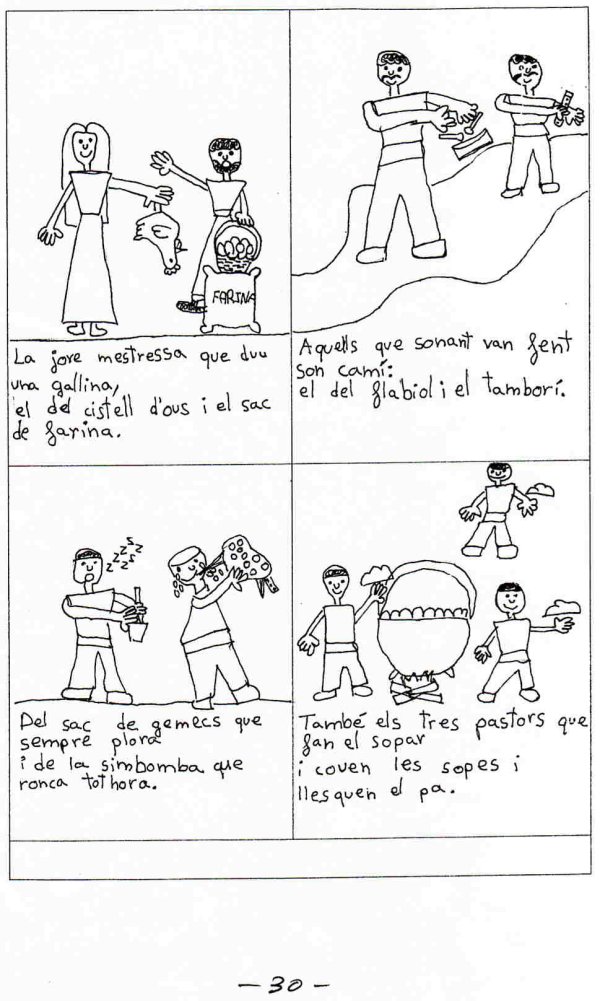 FARINA
La jove mestressa que duu
una gallina,
el del cistell d'ous i el sac
de farina.
Aquells que sonant van fent
son camí:
el del flabiol i el tamborí.
zzzzzz
Del sac de gemecs que
sempre plora
i de la simbomba que
ronca tothora.
També els tres pastors que
fan el sopar
i couen les sopes i
llesquen el pa.
- 30 -